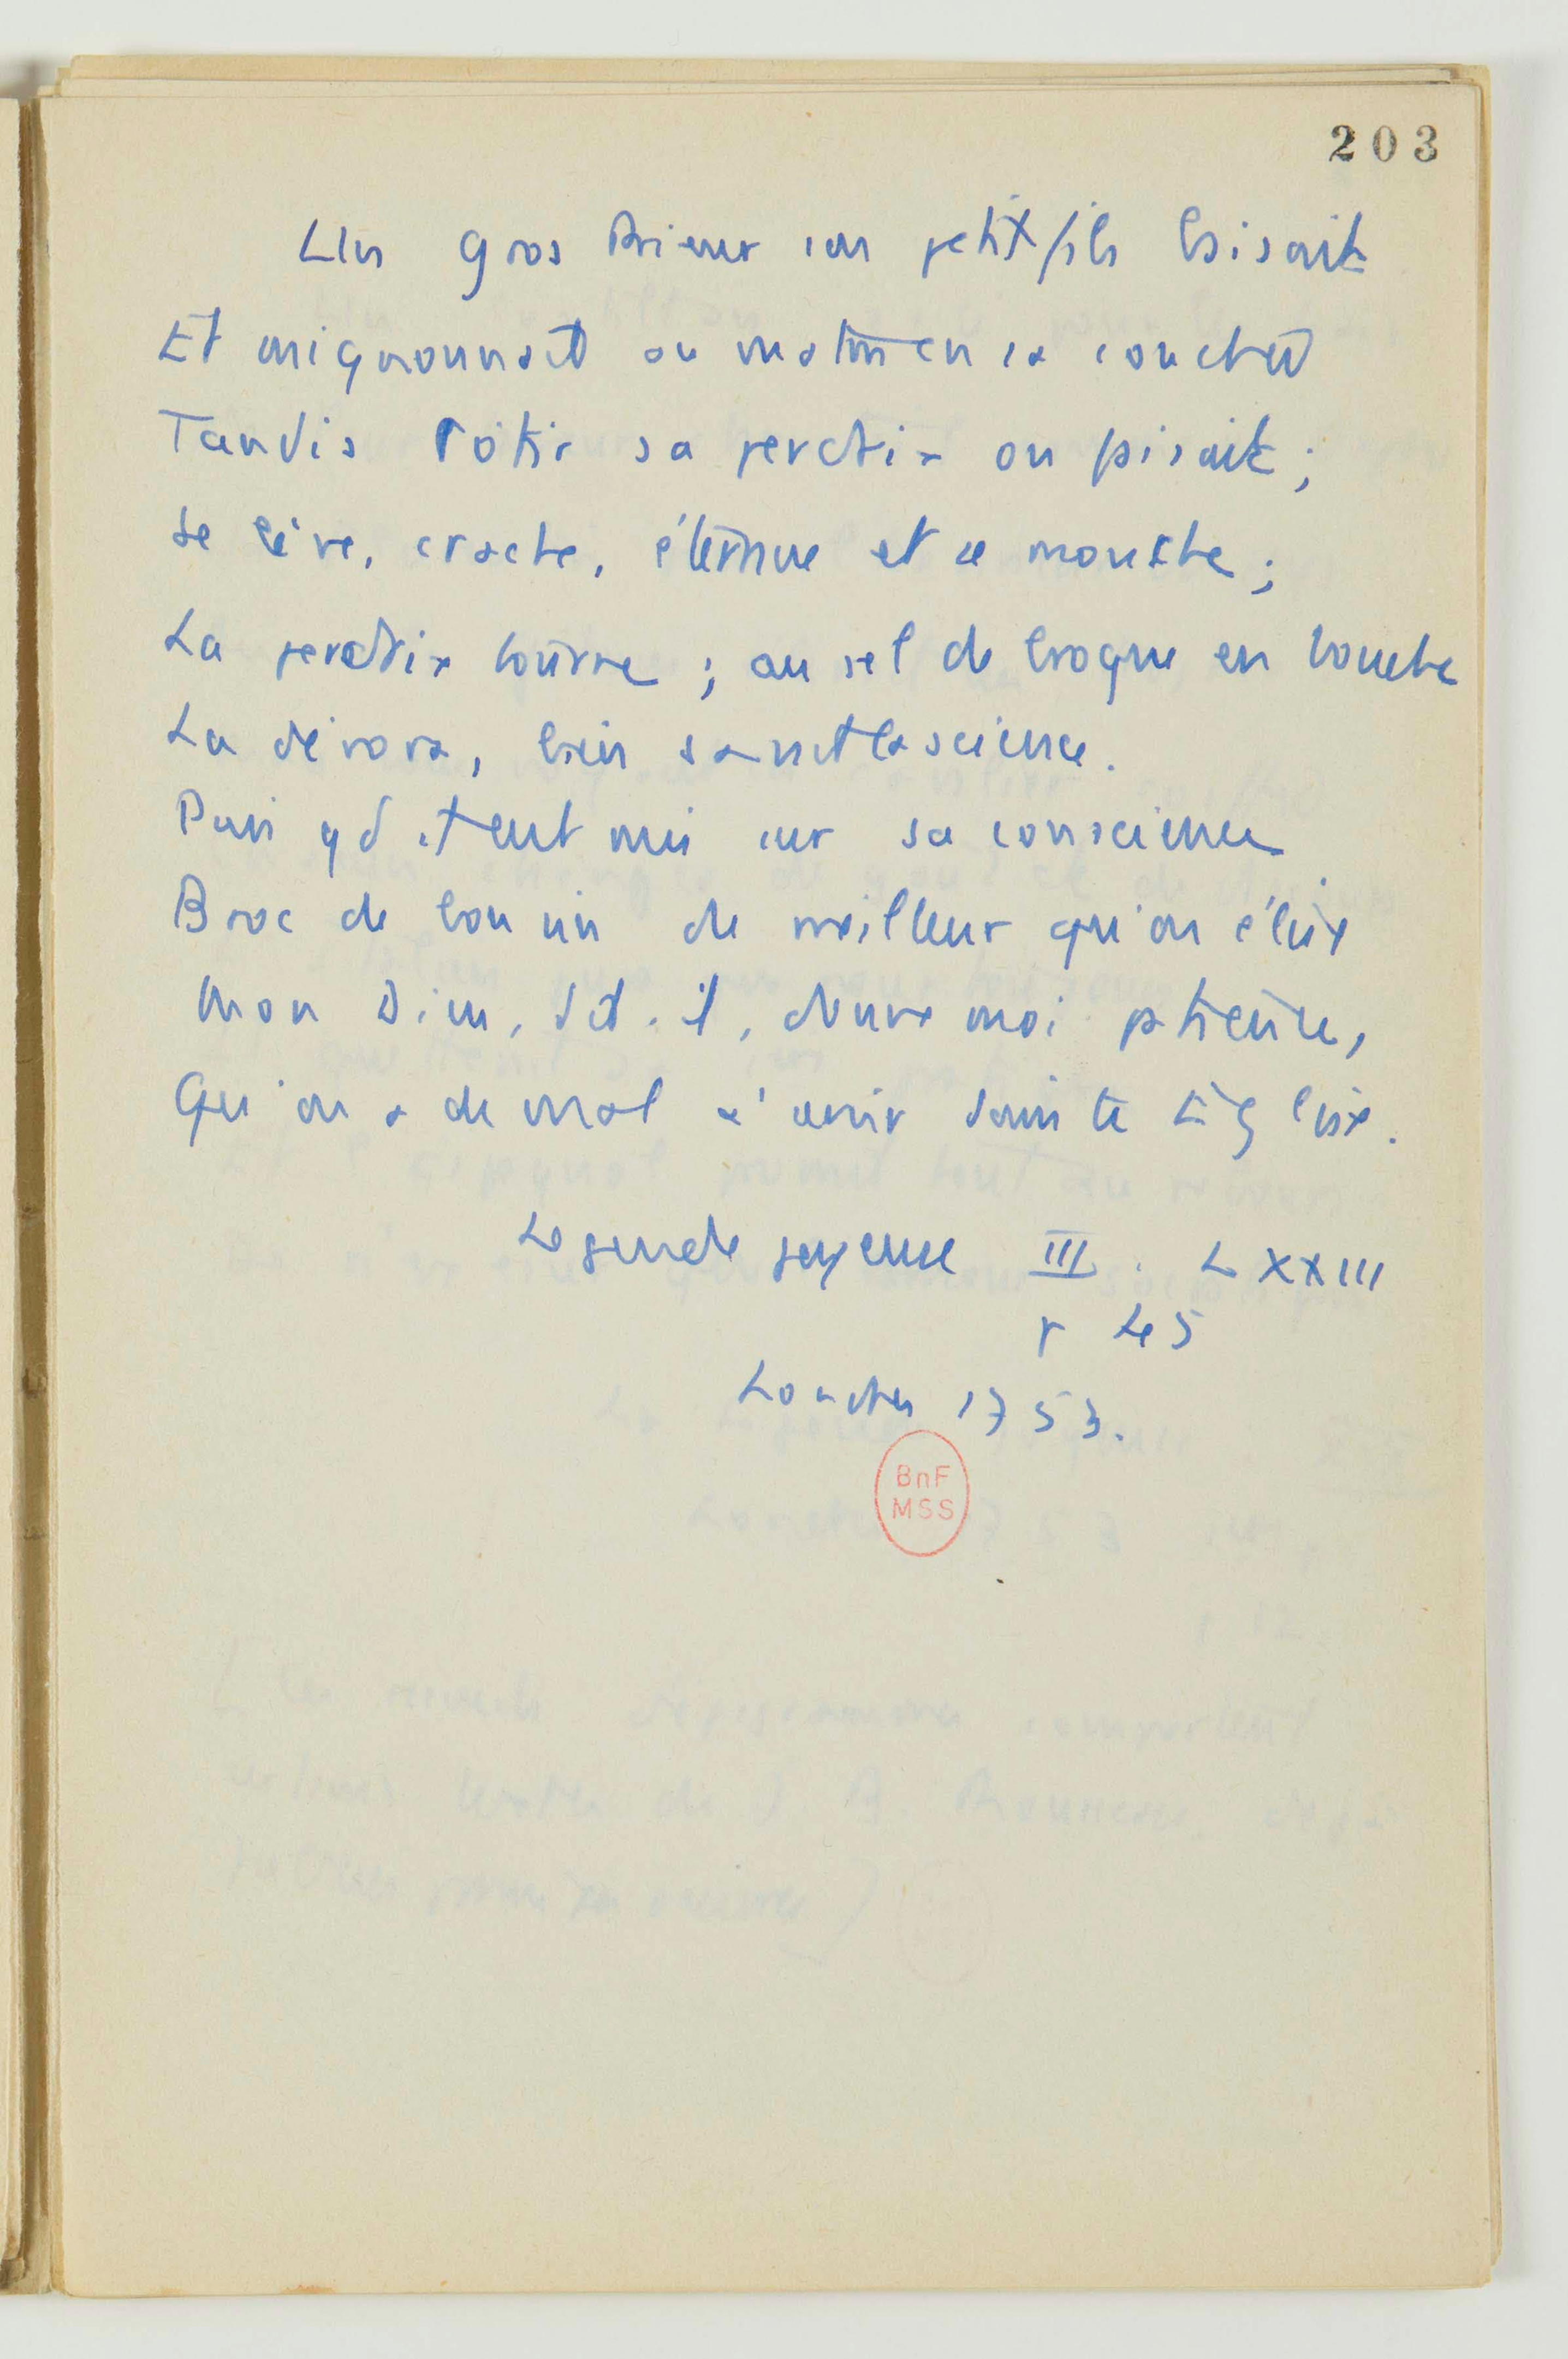 203
Un gros Prieur son petit fils baisait
Et mignonnait au matin en sa couche
Tandis rôtir sa perdrix on faisait ;
Se lève, crache, éternue et se mouche ;
La perdrix tourne ; au sel de broque en bouche
La dévora, bien savait la science.
Puis qd il eut mis sur sa conscience
Broc de bon vin du meilleur qu'on élise
Mon Dieu, dit-il, donne moi patience,
Qu'on a de mal à servir Sainte Eglise.
Legende joyeuse III. LXXIII
p 45
Londres 1753.
BnF
MSS